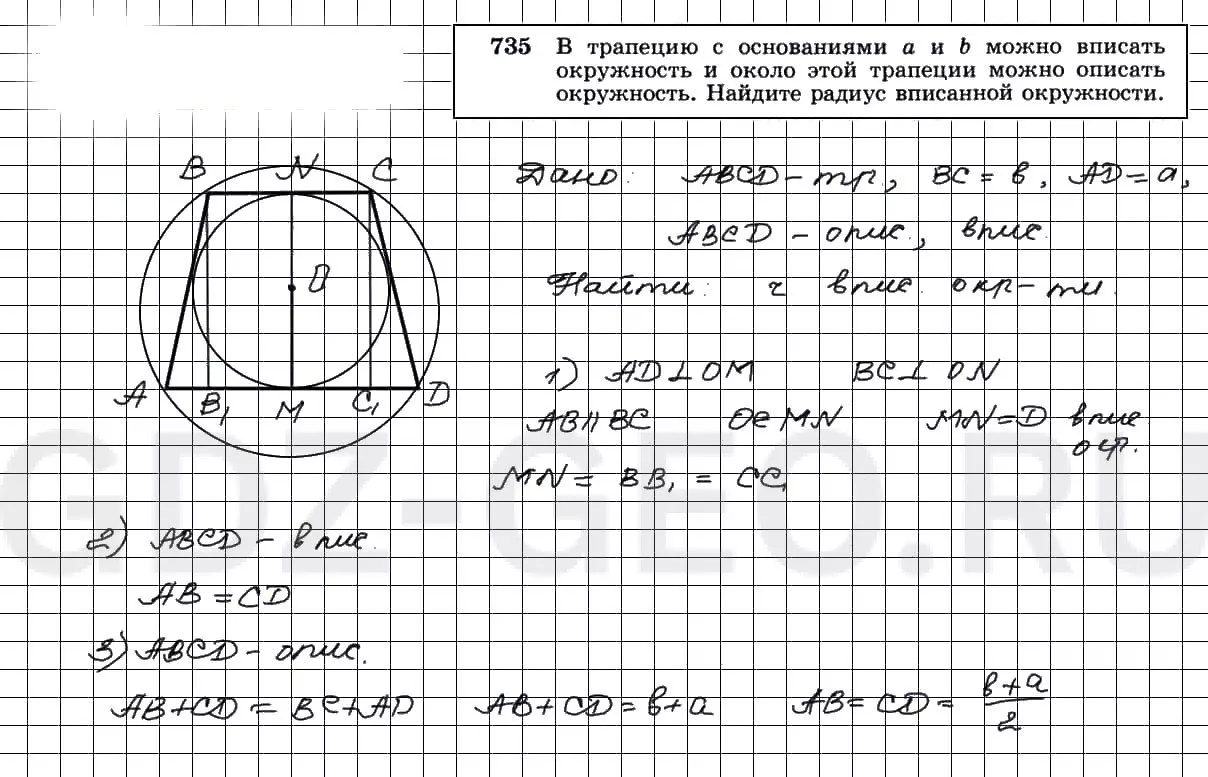 735 В трапецию с основаниями a и b можно вписать
окружность и около этой трапеции можно описать
окружность. Найдите радиус вписанной окружности.
B N C
O
A B₁ M C₁ D
Дано: ABCD – тр., BC = b, AD = a,
ABCD – опис., впис.
Найти: r впис. окр-ти.
1) AD ⊥ OM BC ⊥ ON
AB ∥ BC O ∈ MN MN = D впис.
окр.
MN = BB₁ = CC₁
2) ABCD – впис.
AB = CD
3) ABCD – опис.
AB + CD = BC + AD AB + CD = b + a AB = CD = (b + a)/2
GDZ-GEO.RU